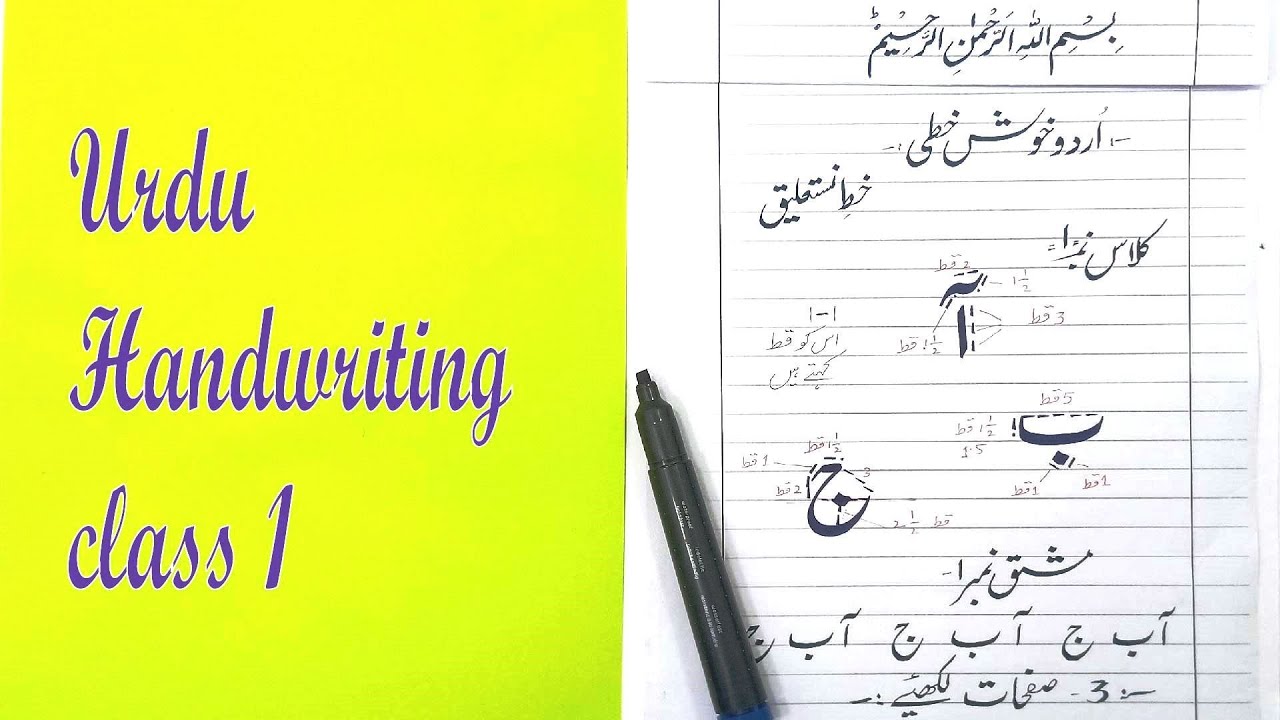 Urdu
Handwriting
class 1
بِسْمِ اللہِ الرَّحْمٰنِ الرَّحِیْمْ
-: اُردو خوش خطی :-
خطِ نستعلیق
کلاس نمبر ۱ =
2 قط
1 1/2
3 قط
1 1/2 قط
۱-۱
اس کو قط
کہتے ہیں
5 قط
1 1/2 قط
1.5
ب
1 قط
1 قط
1 1/2 قط
1 قط
3
2 قط
ج
2 1/2 قط
مشق نمبر ۱-
آ ب ج آ ب ج آ ب ج
-: 3- صفحات لکھئیے :-